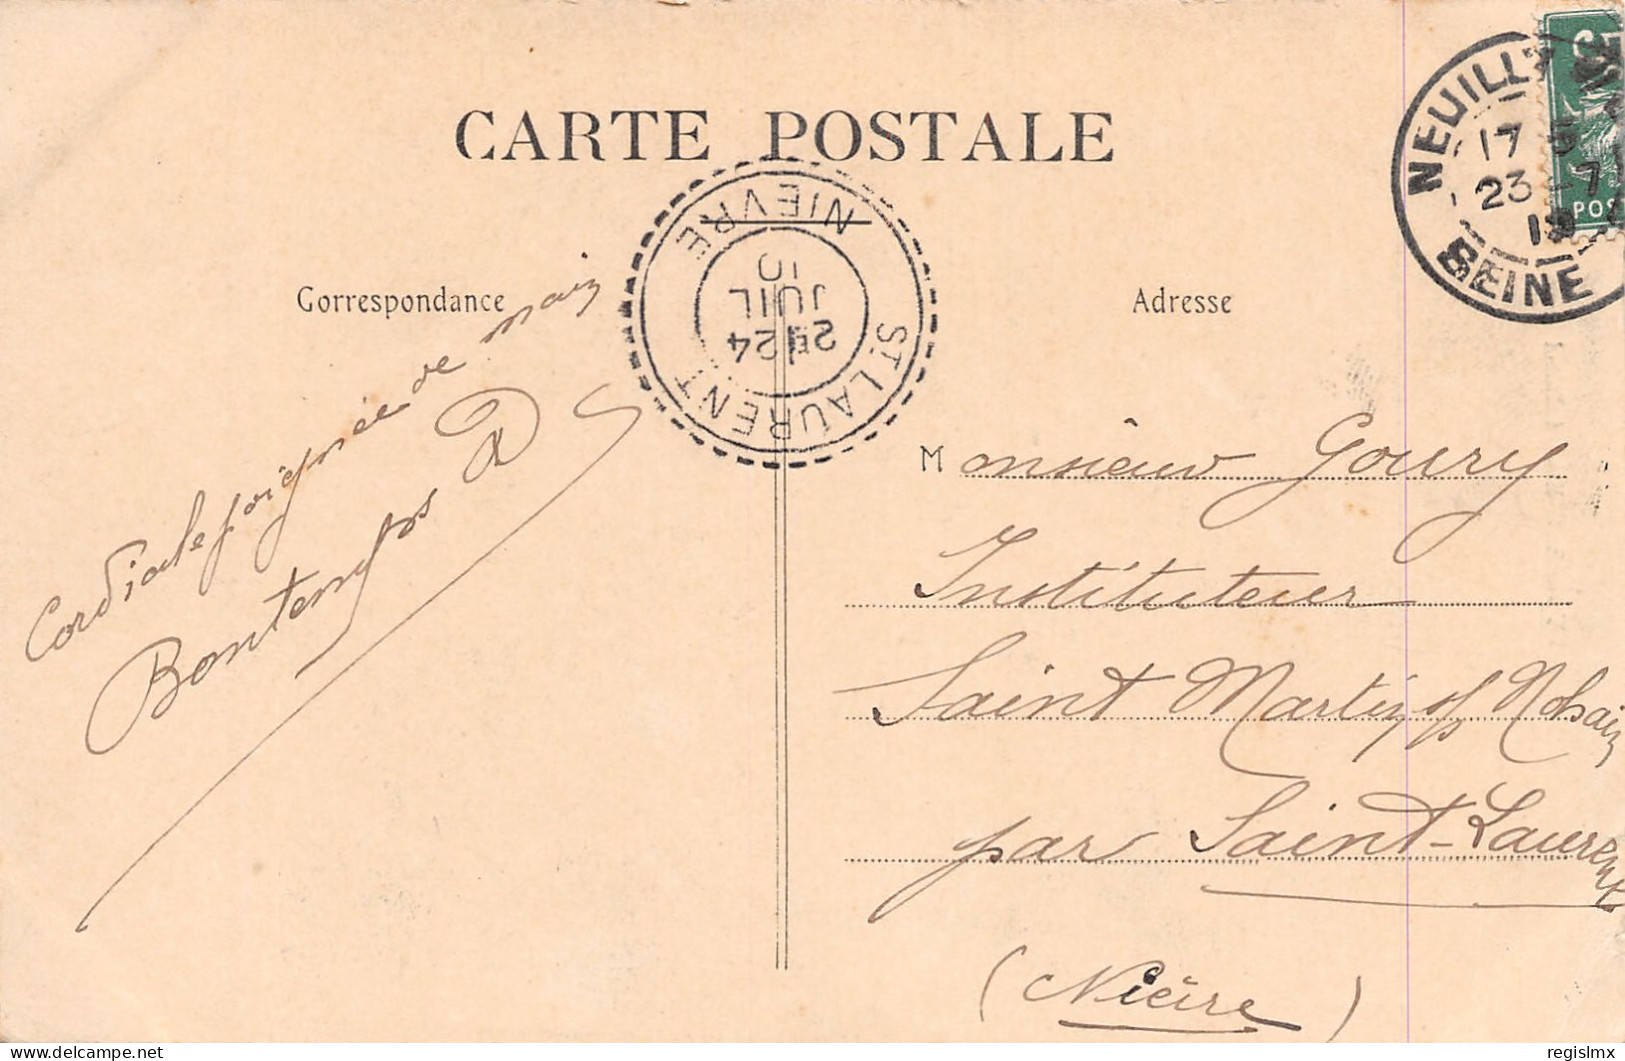 CARTE POSTALE
Correspondance
Adresse
NEUILLY
17
23-7
SEINE
POS
ST LAURENT
2E 24
JUIL
10
NIEVRE
Cordiale poignée de main
Bontemps
Monsieur Goury
Instituteur
Saint Martin s/ Nohain
par Saint-Laurent
(Nièvre)
delcampe.net
regislmx